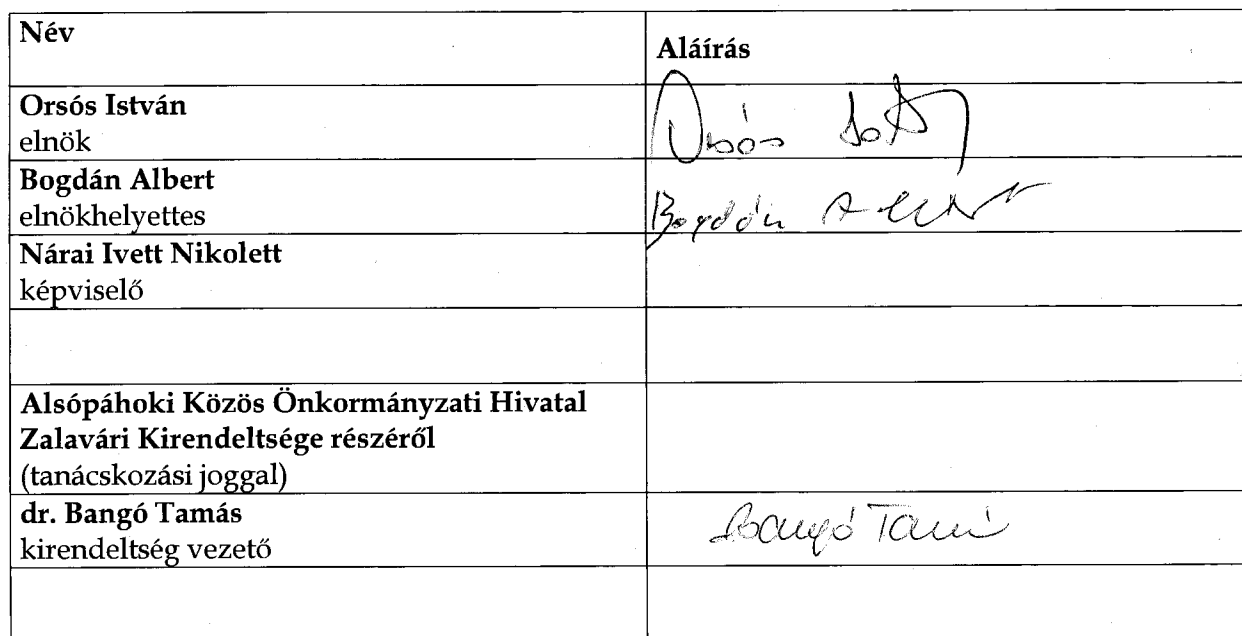 Név
Aláírás
Orsós István
elnök
Orsós
Bogdán Albert
elnökhelyettes
Bogdán Albert
Nárai Ivett Nikolett
képviselő
Alsópáhoki Közös Önkormányzati Hivatal
Zalavári Kirendeltsége részéről
(tanácskozási joggal)
dr. Bangó Tamás
kirendeltség vezető
Bangó Tamás